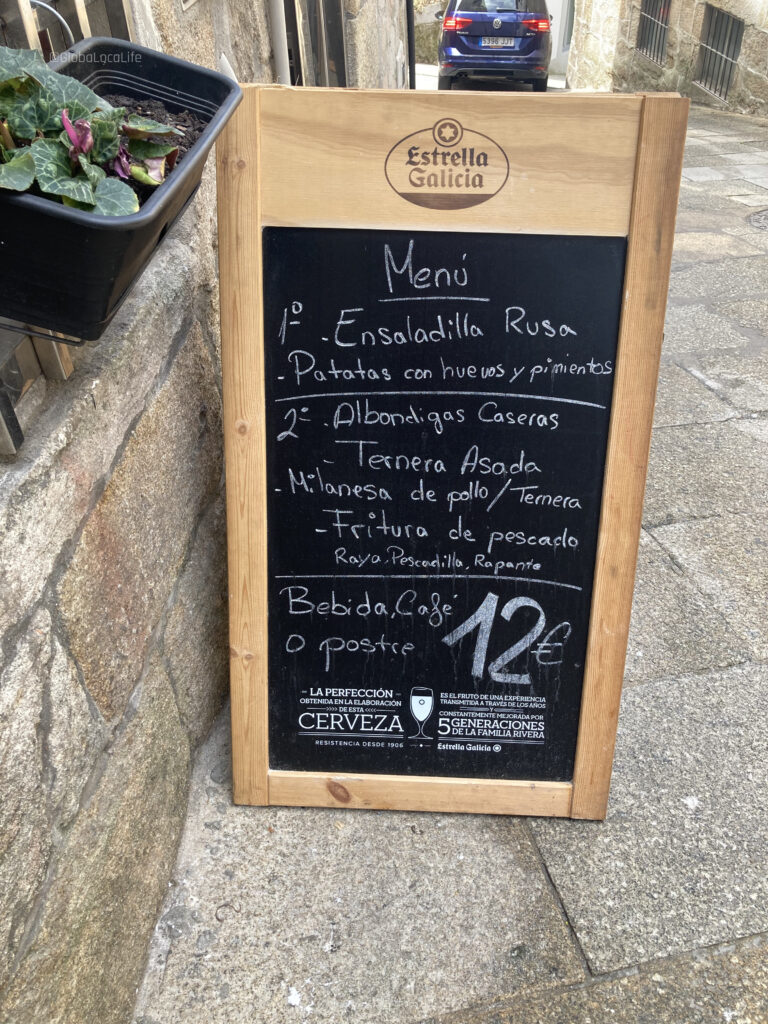 @GlobaLocaLife
5396 JJT
Estrella
Galicia
Menú
1º - Ensaladilla Rusa
- Patatas con huevos y pimientos
2º - Albondigas Caseras
- Ternera Asada
- Milanesa de pollo/Ternera
- Fritura de pescado
Raya, Pescadilla, Rapante
Bebida, Café
o postre
12€
LA PERFECCIÓN
OBTENIDA EN LA ELABORACIÓN
DE ESTA
CERVEZA
RESISTENCIA DESDE 1906
ES EL FRUTO DE UNA EXPERIENCIA
TRANSMITIDA A TRAVÉS DE LOS AÑOS
Y
CONSTANTEMENTE MEJORADA POR
5 GENERACIONES
DE LA FAMILIA RIVERA
Estrella Galicia